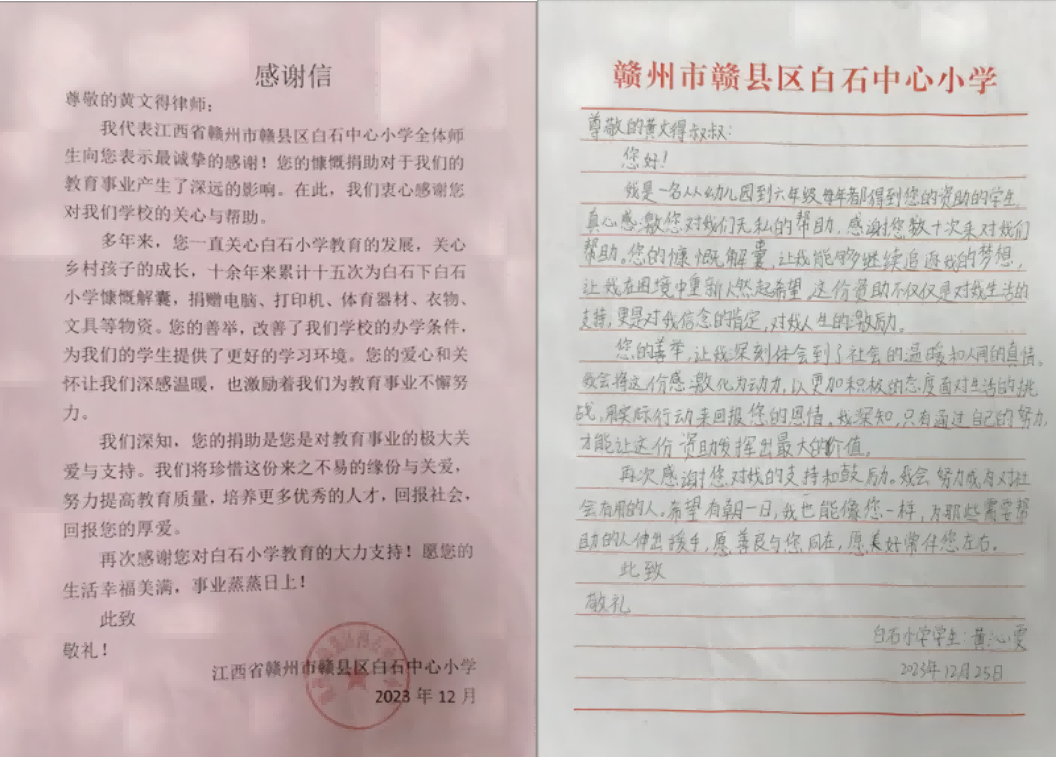 感谢信
尊敬的黄文得律师：
我代表江西省赣州市赣县区白石中心小学全体师
生向您表示最诚挚的感谢！您的慷慨捐助对于我们的
教育事业产生了深远的影响。在此，我们衷心感谢您
对我们学校的关心与帮助。
多年来，您一直关心白石小学教育的发展，关心
乡村孩子的成长，十余年来累计十五次为白石下白石
小学慷慨解囊，捐赠电脑、打印机、体育器材、衣物、
文具等物资。您的善举，改善了我们学校的办学条件，
为我们的学生提供了更好的学习环境。您的爱心和关
怀让我们深感温暖，也激励着我们为教育事业不懈努
力。
我们深知，您的捐助是您是对教育事业的极大关
爱与支持。我们将珍惜这份来之不易的缘份与关爱，
努力提高教育质量，培养更多优秀的人才，回报社会，
回报您的厚爱。
再次感谢您对白石小学教育的大力支持！愿您的
生活幸福美满，事业蒸蒸日上！
此致
敬礼！
江西省赣州市赣县区白石中心小学
2023 年 12 月
赣州市赣县区白石中心小学
尊敬的黄文得叔叔：
您好！
我是一名从幼儿园到六年级每年都得到您的资助的学生，
真心感激您对我们无私的帮助，感谢您数十次来对我们
帮助。您的慷慨解囊，让我能够继续追逐我的梦想，
让我在困境中重新燃起希望。这份资助不仅仅是对我生活的
支持，更是对我信念的肯定，对我人生的激励。
您的善举，让我深刻体会到了社会的温暖和人间的真情。
我会将这份感激化为动力，以更加积极的态度面对生活的挑
战，用实际行动来回报您的恩情。我深知，只有通过自己的努力，
才能让这份资助发挥出最大的价值。
再次感谢您对我的支持和鼓励。我会努力成为对社
会有用的人。希望有朝一日，我也能像您一样，为那些需要帮
助的人伸出援手，愿善良与您同在，愿美好常伴您左右。
此致
敬礼
白石小学学生：黄沁雯
2023年12月25日